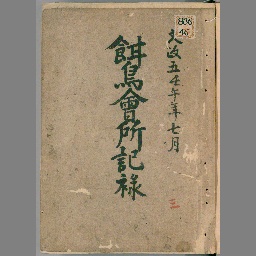 文政五壬午年七月
餌鳥會所記祿
三
806
46